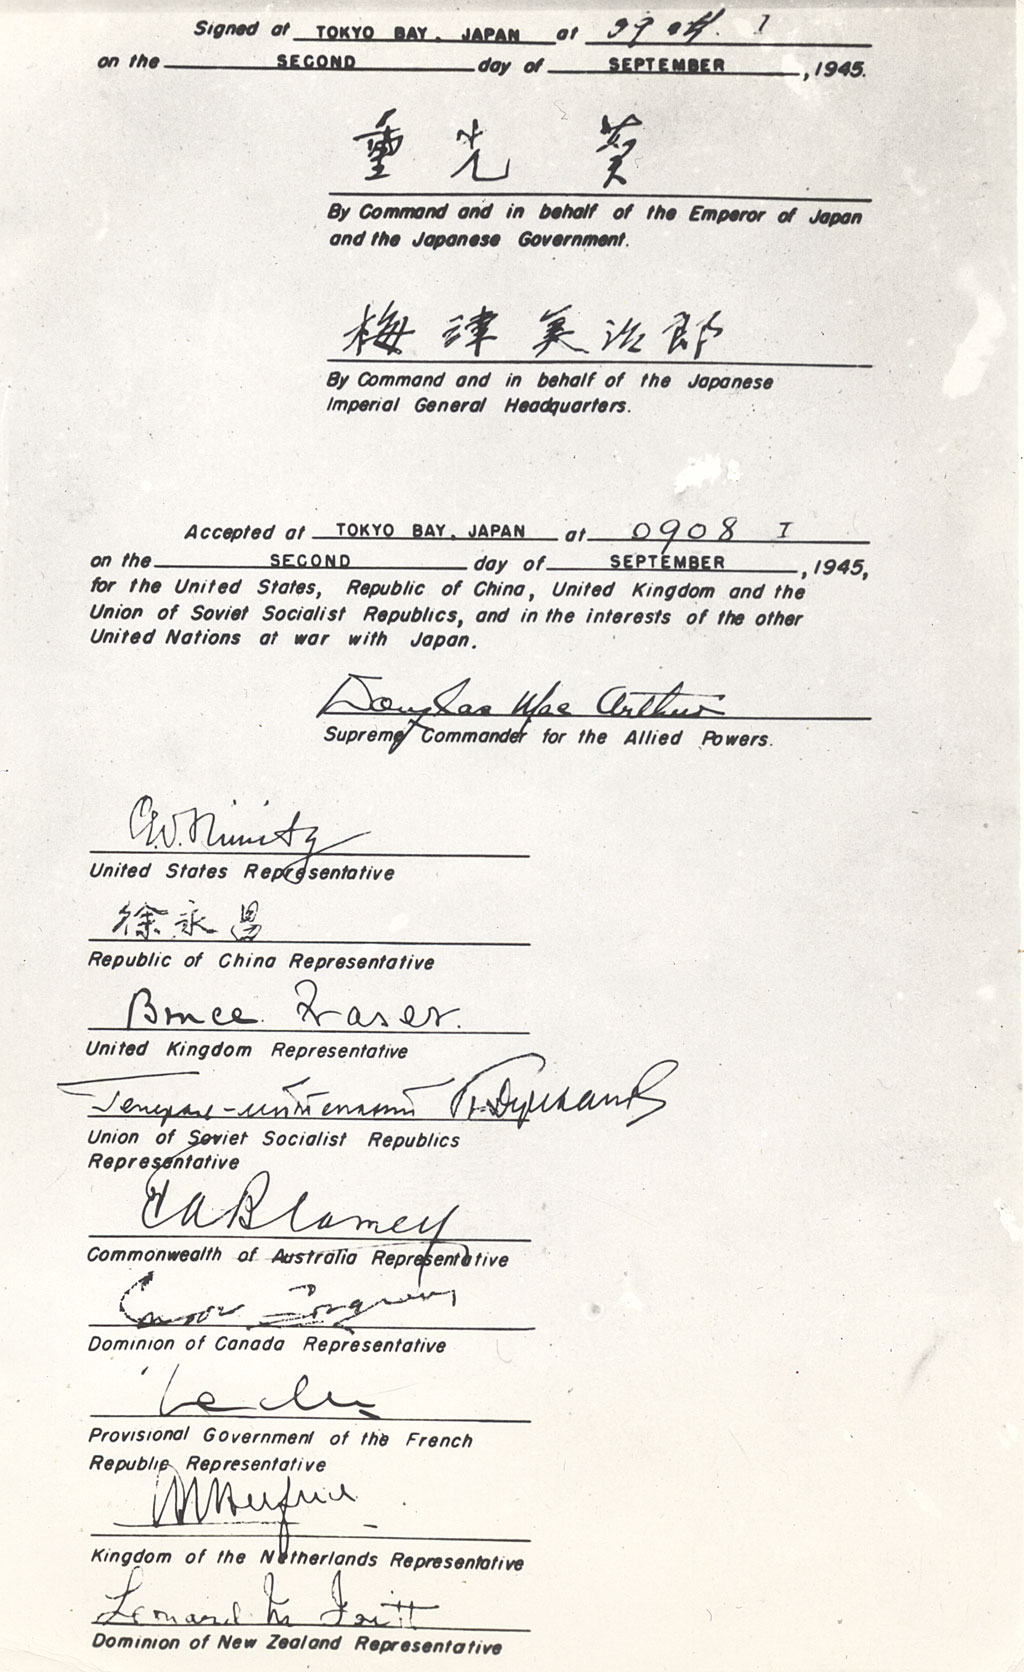 Signed at TOKYO BAY, JAPAN at I
on the SECOND day of SEPTEMBER, 1945.
重光 葵
By Command and in behalf of the Emperor of Japan
and the Japanese Government.
梅津美治郎
By Command and in behalf of the Japanese
Imperial General Headquarters.
Accepted at TOKYO BAY, JAPAN at 0908 I
on the SECOND day of SEPTEMBER, 1945,
for the United States, Republic of China, United Kingdom and the
Union of Soviet Socialist Republics, and in the interests of the other
United Nations at war with Japan.
Douglas MacArthur
Supreme Commander for the Allied Powers.
C.W. Nimitz
United States Representative
徐永昌
Republic of China Representative
Bruce Fraser.
United Kingdom Representative
Генерал-лейтенант
Union of Soviet Socialist Republics
Representative
T A Blamey
Commonwealth of Australia Representative
Dominion of Canada Representative
Provisional Government of the French
Republic Representative
Kingdom of the Netherlands Representative
Leonard M Isitt
Dominion of New Zealand Representative